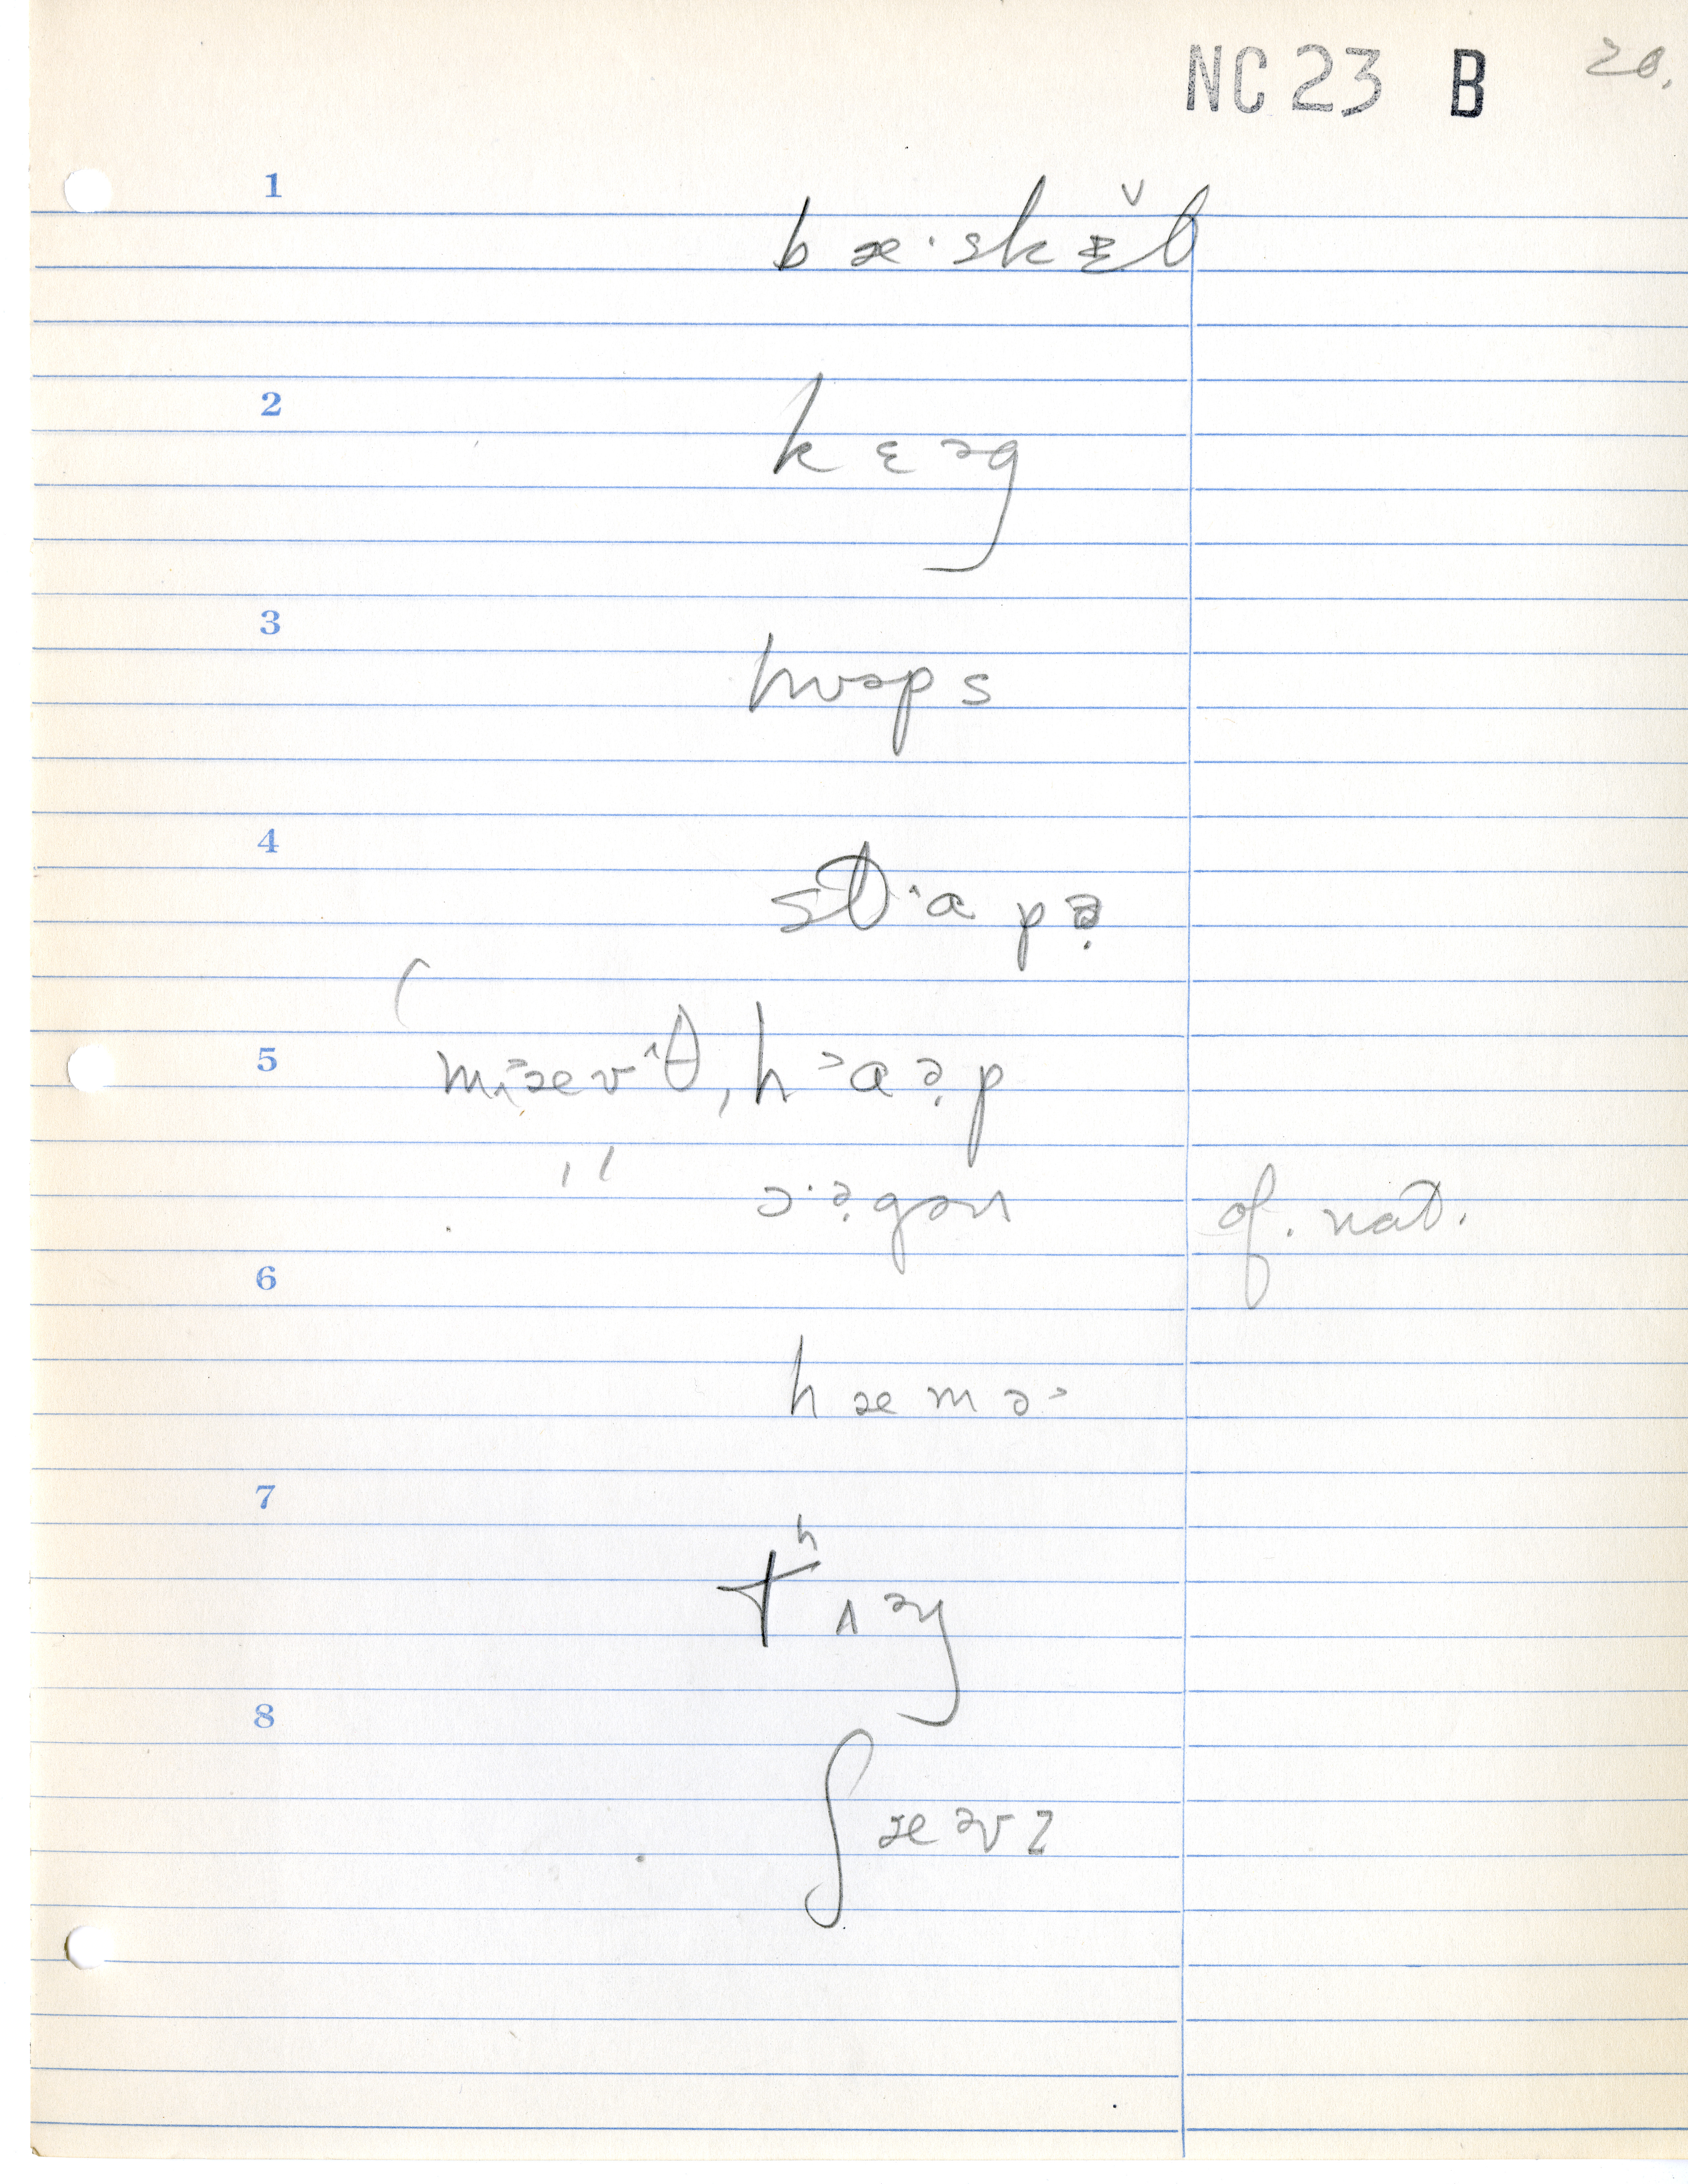 NC 23 B 20.
1
bæ·skɛ̆t
2
kɛəg
3
hʊəps
4
st·ɑpə̣
5
mæv^θ, hᵊɑə̣p
" ɔ·ə̣gən of. nat.
6
hæmɚ
7
tʰʌəŋ
8
ʃævz